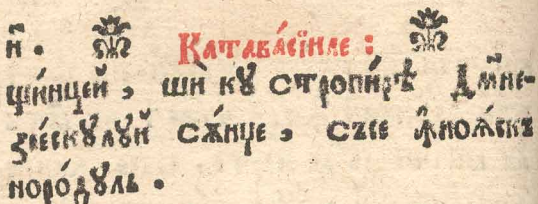 н҃. Катава́сїиле :
щи́нцей, шѝ кꙋ стропи́рѣ Дм҃не-
зее́скꙋлꙋй сѫ́нџе, съсе ꙟноѧ́скъ
норо́дꙋль.